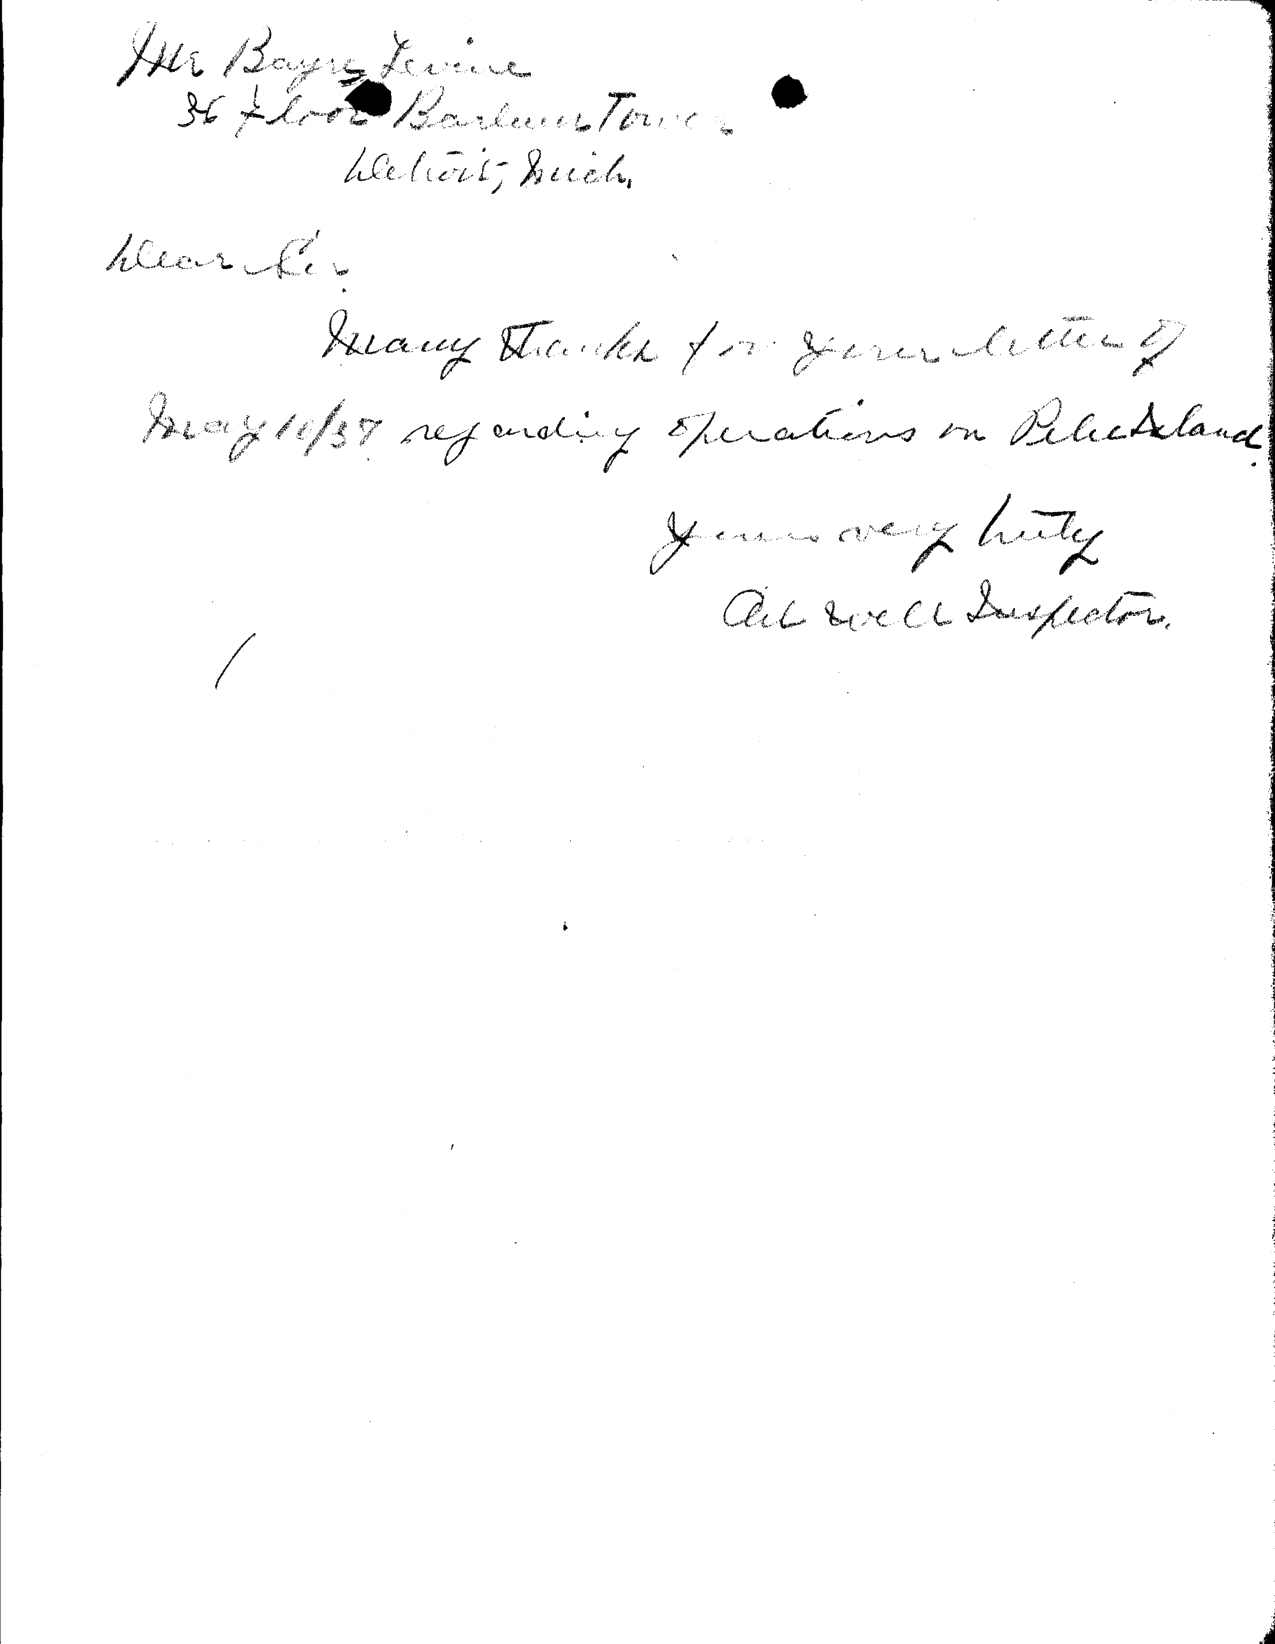 Mr Bayre Levine
36 floor Barlum Tower
Detroit, Mich.
Dear Sir
Many thanks for your letter of
May 10/37 regarding operations on Pelee Island.
Yours very truly
Oil Well Inspector.